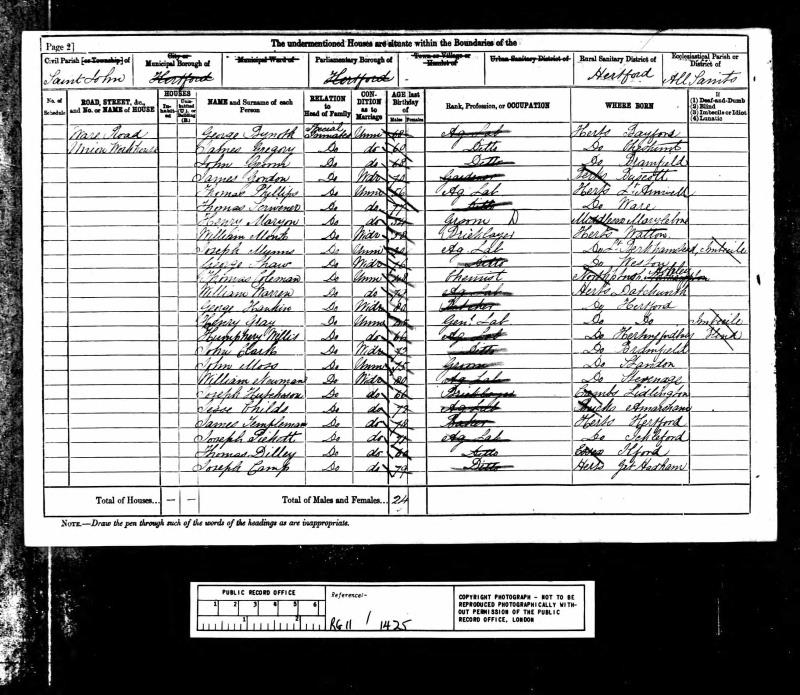 [Page 2]
The undermentioned Houses are situate within the Boundaries of the
Civil Parish [or Township] of
Saint John
City or Municipal Borough of
Hertford
Municipal Ward of
Parliamentary Borough of
Hertford
Town or Village or Hamlet of
Urban Sanitary District of
Rural Sanitary District of
Hertford
Ecclesiastical Parish or District of
All Saints
No. of Schedule
ROAD, STREET, &c., and No. or NAME of HOUSE
HOUSES
Inhabited
Uninhabited (U.), or Building (B.)
NAME and Surname of each Person
RELATION to Head of Family
CONDITION as to Marriage
AGE last Birthday of
Males
Females
Rank, Profession, or OCCUPATION
WHERE BORN
If
(1) Deaf-and-Dumb
(2) Blind
(3) Imbecile or Idiot
(4) Lunatic
Ware Road George Inmates Unm Ag Lab Herts Bayford
Union Workhouse Gregory Do do 60 Ditto Do
John Do do 68 Ditto Do Bramfield
James Gordon Do Widr 70 Gardener Herts
Thomas Phillips Do Unm Ag Lab Herts Amwell
Thomas Scrivener Do do Ditto Do Ware
Henry Maryon Do do Groom D Marylebone
William Do Widr Bricklayer Herts Watton
Joseph Mynns Do Unm Ag Lab Do Berkhamsted Imbecile
George Shaw Do Widr Ditto Do Weston
Thomas Coleman Do Unm Chemist
William Warren Do do Ag Lab Herts Datchworth
George Do Widr 80 Butcher Do Hertford
Henry Gray Do Unm Genl Lab Do Do Imbecile
Humphery Willis Do do 66 Ag Lab Do Hertingfordbury Blind
John Clark Do Widr 73 Ditto Do Bramfield
John Moss Do Unm 75 Groom Do Standon
William Newman Do Widr 80 Ag Lab Do Stevenage
Joseph Hutcheson Do do Bricklayer Lidlington
Jesse Childs Do do 72 Ag Lab Bucks Amersham
James Templeman Do do 78 Baker Herts Hertford
Joseph Do do 71 Ag Lab Do Ickleford
Thomas Dilley Do do Ditto Essex Ilford
Joseph Camp Do do 79 Ditto Herts Gt Hadham
Total of Houses... — — Total of Males and Females... 24
NOTE.—Draw the pen through such of the words of the headings as are inappropriate.
PUBLIC RECORD OFFICE
1 2 3 4 5 6
1 2
Reference:-
RG 11 / 1425
COPYRIGHT PHOTOGRAPH - NOT TO BE
REPRODUCED PHOTOGRAPHICALLY WITH-
OUT PERMISSION OF THE PUBLIC
RECORD OFFICE, LONDON